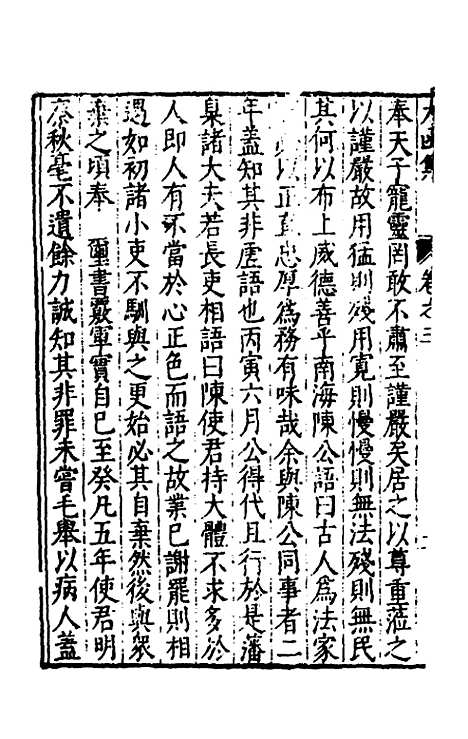 太函集 卷之三
奉天子寵靈罔敢不肅至謹嚴矣居之以尊重蒞之
以謹嚴故用猛則殘用寬則慢慢則無法殘則無民
其何以布上威德善乎南海陳公語曰古人爲法家
以正直忠厚爲務有味哉余與陳公同事者二
年蓋知其非虗語也丙寅六月公得代且行於是藩
臬諸大夫若長吏相語曰陳使君持大體不求多於
人即人有不當於心正色而語之故業已謝罷則相
遇如初諸小吏不馴與之更始必其自棄然後與衆
棄之頃奉 璽書覈軍實自巳至癸凡五年使君明
察秋毫不遺餘力誠知其非罪未嘗毛舉以病人蓋